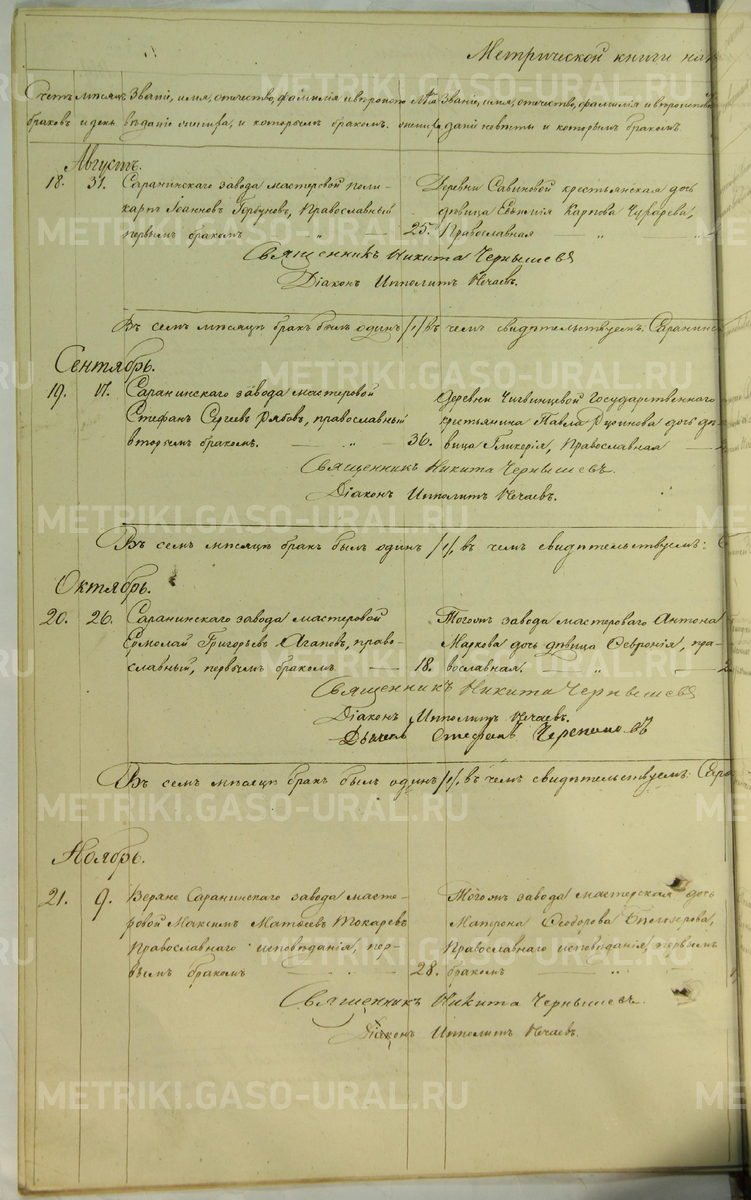 Метрической книги на
Счетъ мѣсяцъ Званіе, имя, отчество, фамилія и вѣроисповѣ Лѣта Званіе, имя, отчество, фамилія и вѣроисповѣ
браковъ и день вѣданіе жениха, и которымъ бракомъ. жениха даніе невѣсты и которымъ бракомъ.
Августъ.
18. 31. Саранинскаго завода мастеровой Поли-
карпъ Іоанновъ Горбуновъ, Православный
первымъ бракомъ 25.
Деревни Савиновой крестьянская дочь
дѣвица Евѳимія Карпова
Православная
Священникъ Никита Чернышевъ
Діаконъ Ипполитъ Нечаевъ.
Въ семъ мѣсяцѣ бракъ былъ одинъ /1/ въ чемъ свидѣтельствуемъ: Саранинс
Сентябрь.
19. 17. Саранинскаго завода мастеровой
Стефанъ Сергеевъ Рябовъ, православный
вторымъ бракомъ. 36.
Деревни Чигвинцевой Государственнаго
крестьянина Павла дочь дѣ-
вица Гликерія, Православная
Священникъ Никита Чернышевъ.
Діаконъ Ипполитъ Нечаевъ.
Въ семъ мѣсяцѣ бракъ былъ одинъ /1/, въ чемъ свидѣтельствуемъ: С
Октябрь.
20. 26. Саранинскаго завода мастеровой
Ермолай Григорьевъ Агаповъ, право-
славный, первымъ бракомъ 18.
Тогожъ завода мастероваго Антона
Маркова дочь дѣвица Ѳевронія, пра-
вославная.
Священникъ Никита Чернышевъ
Діаконъ Ипполитъ Нечаевъ.
Дьячекъ Стефанъ Черепановъ
Въ семъ мѣсяцѣ бракъ былъ одинъ /1/, въ чемъ свидѣтельствуемъ: Сара
Ноябрь.
21. 9. Верхне Саранинскаго завода масте-
ровой Максимъ Матвѣевъ Токаревъ
Православнаго исповѣданія, пер-
вымъ бракомъ 28.
Тогожъ завода мастерская дочь
Матрона Ѳеодорова
Православнаго исповѣданія, первымъ
бракомъ
Священникъ Никита Чернышевъ.
Діаконъ Ипполитъ Нечаевъ.
METRIKI.GASO-URAL.RU